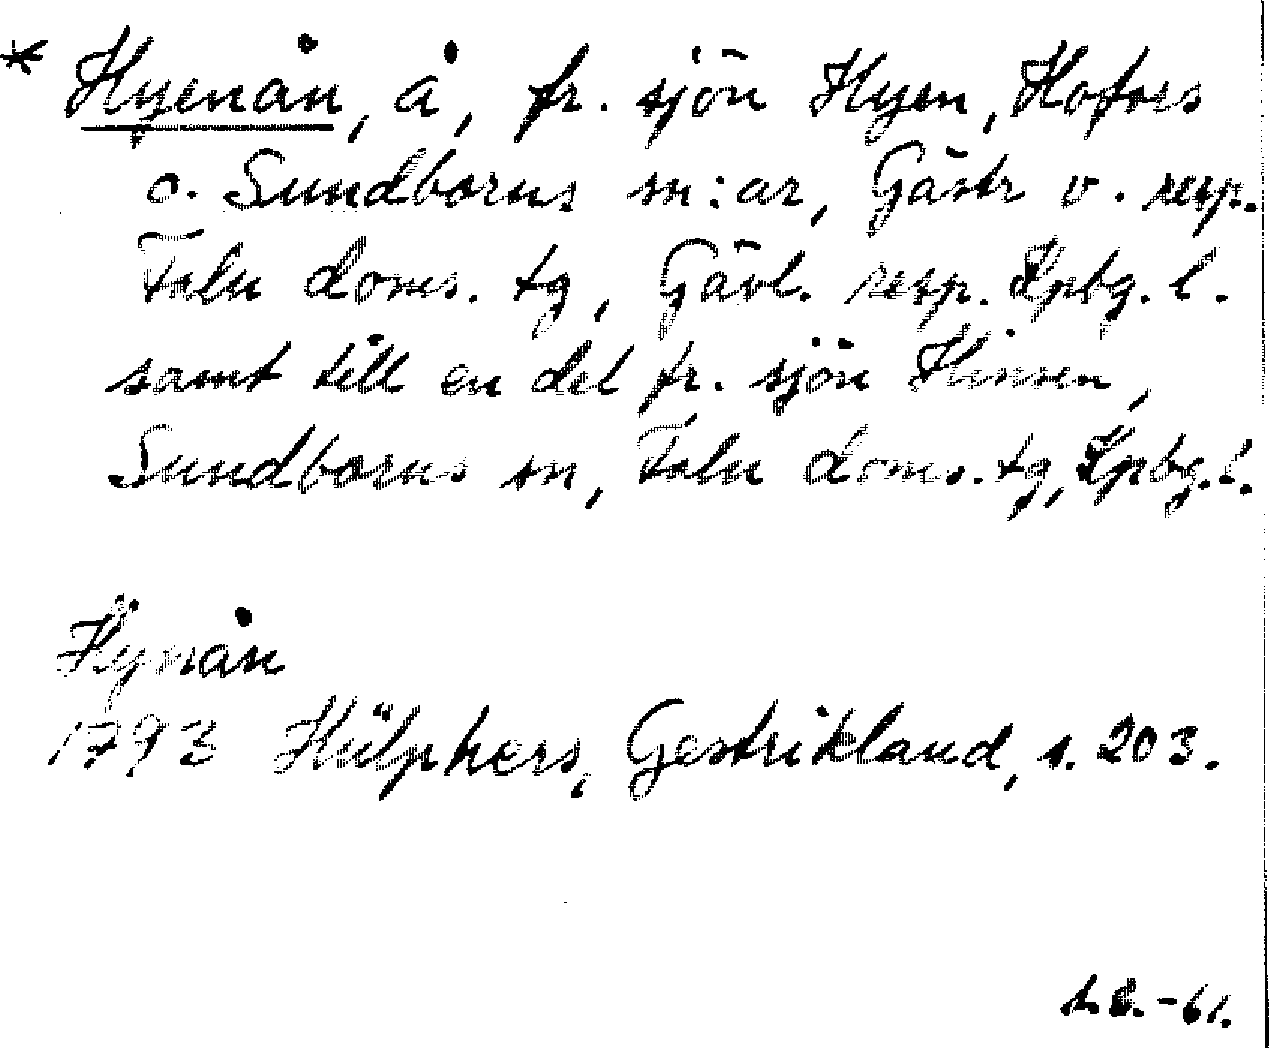 * Hyenån, å, fr. sjön Hyen, Hofors
o. Sundborns sn:ar, Gästr v. resp.
Falu doms. tg, Gävl. resp. Kpbg. l.
samt till en del fr. sjön Hinsen,
Sundborns sn, Falu doms. tg, Kpbg. l.
Hÿnån
1793 Hülphers, Gestrikland, s. 203.
-61.